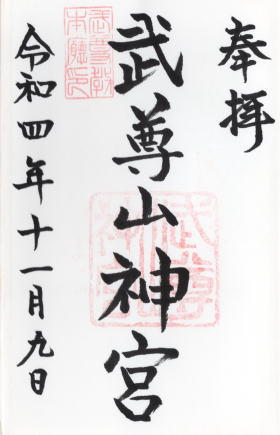 奉拝
武尊山神宮
令和四年十一月九日